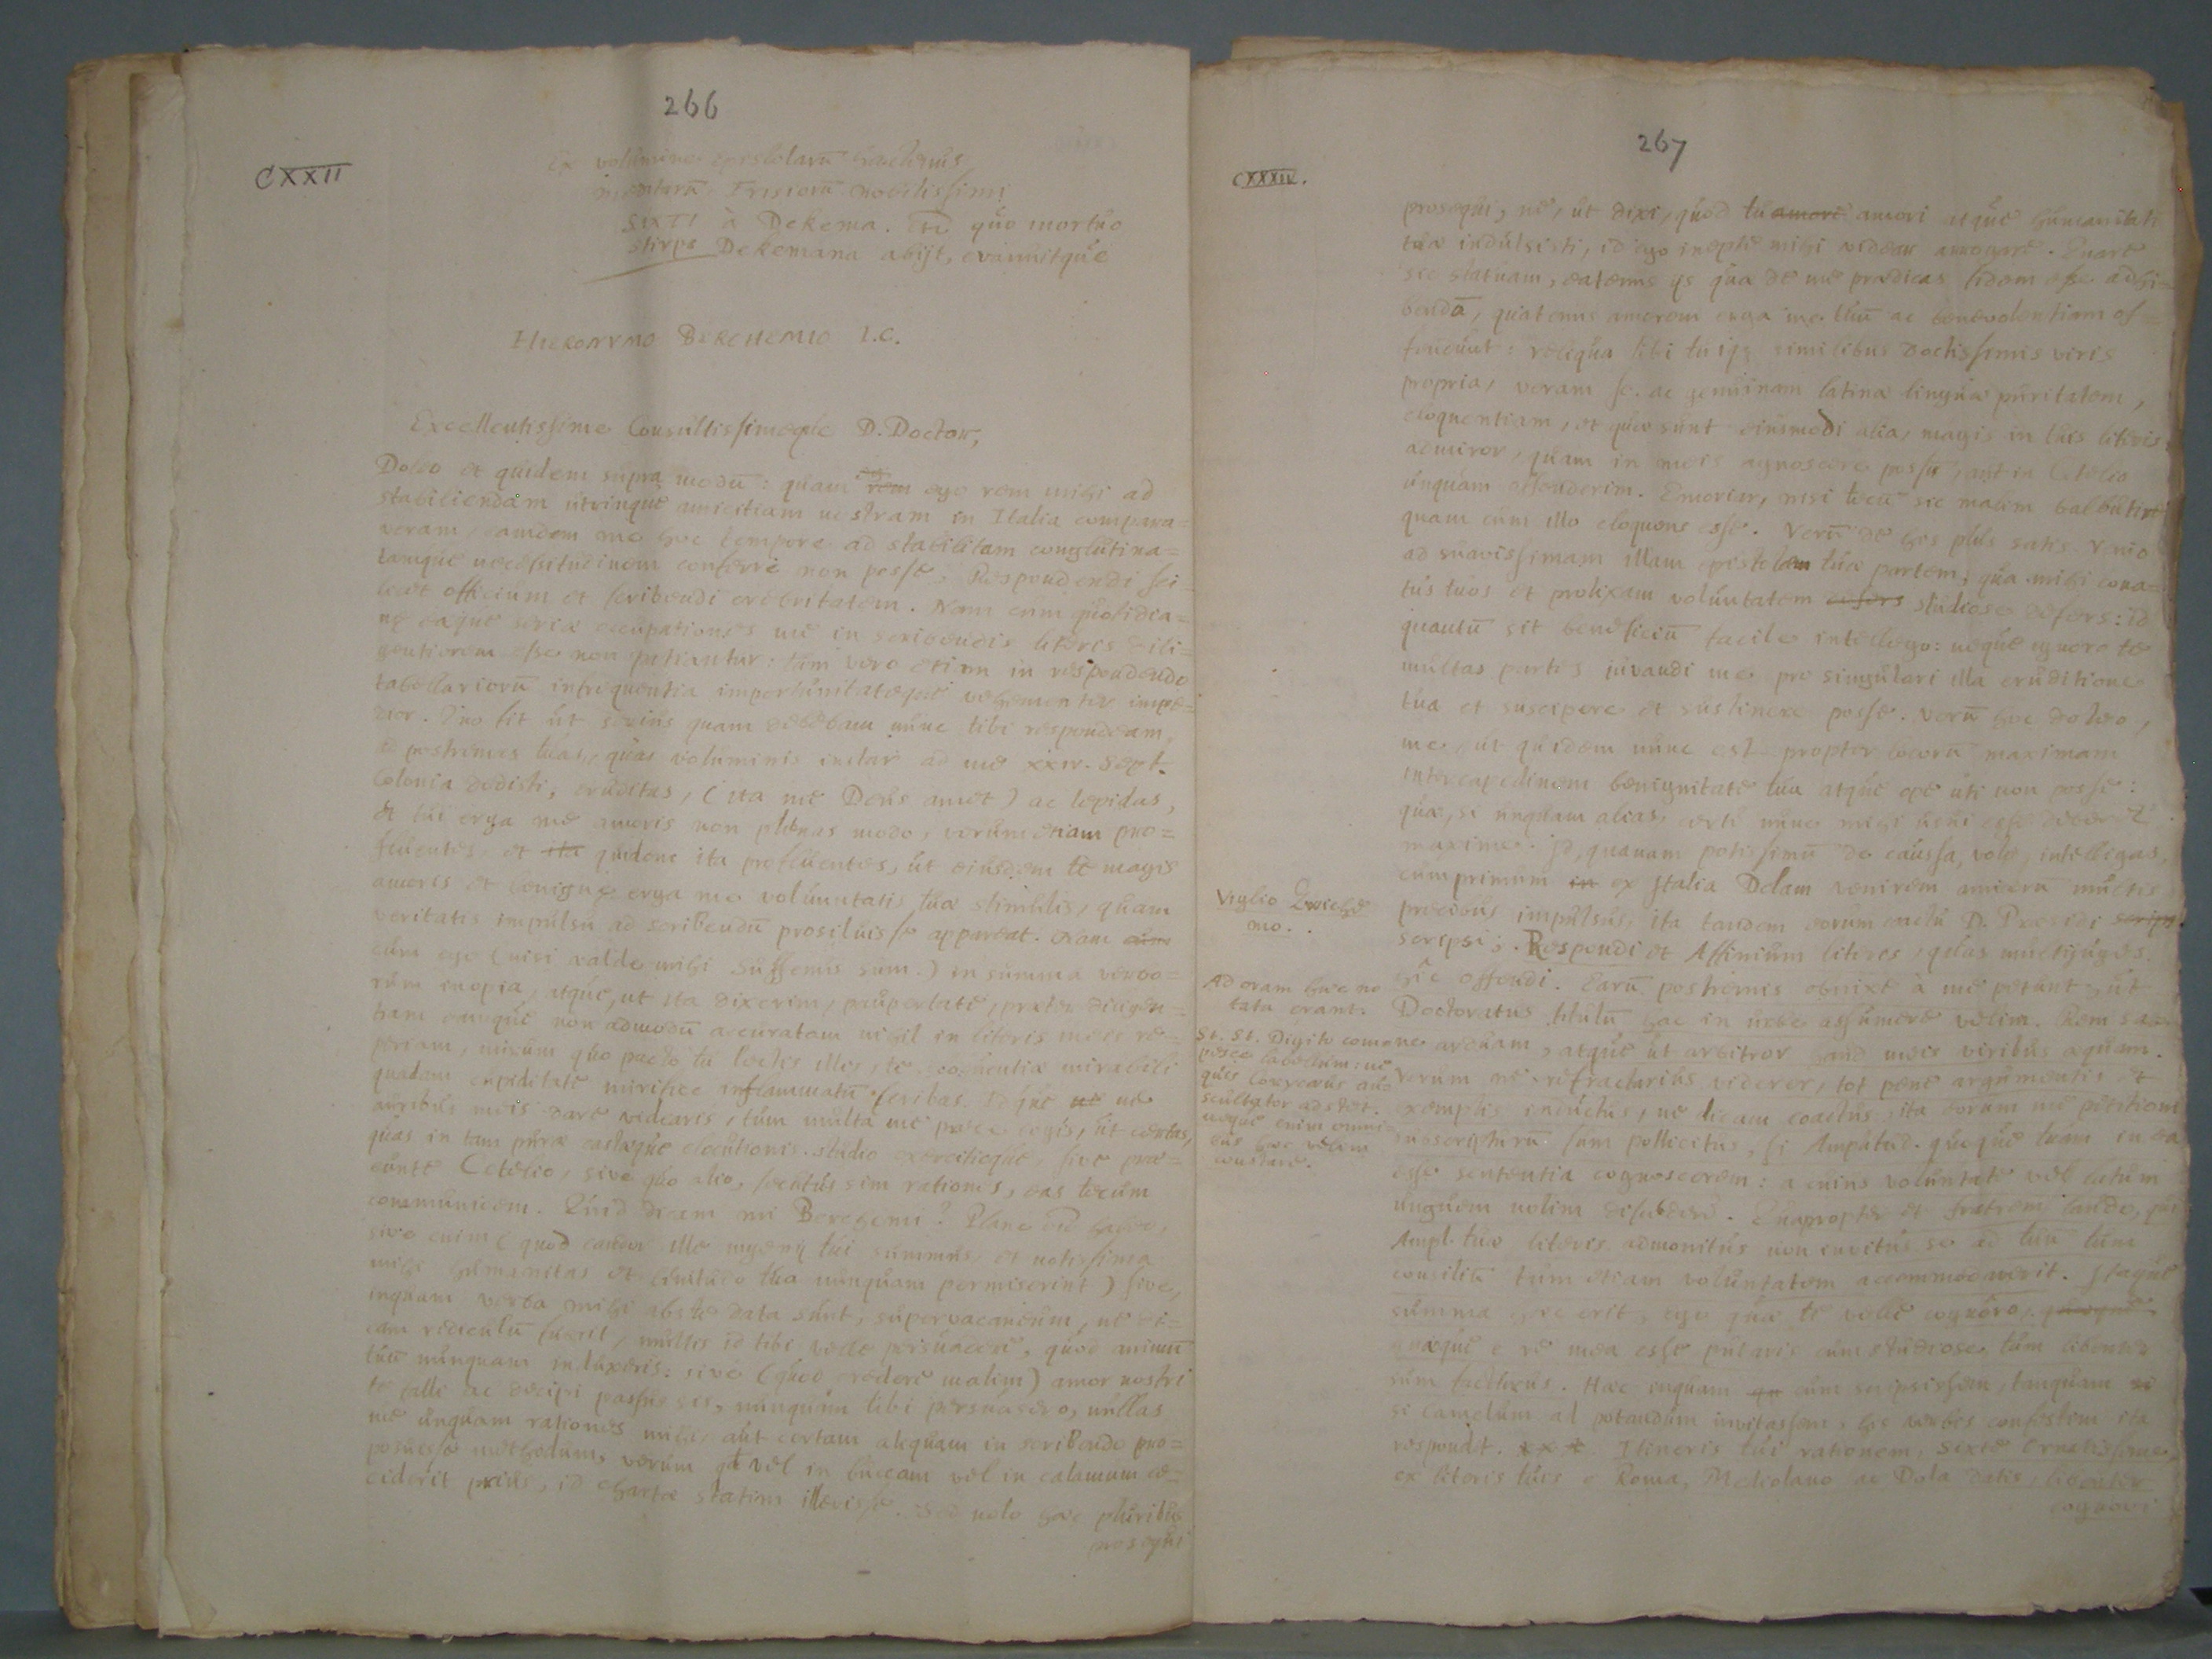 266
CXXII
Ex volumine epistolarū hactenus
Frisiorū nobilissimi
SIXTI à Dekema. quo mortuo
stirps Dekemana abijt, evanuitque
HIERONYMO BERCHEMIO I.C.
Excellentissime Consultissimeque D. Doctor,
Doleo et quidem supra modū: quam rem ego rem mihi ad
stabiliendam utrinque amicitiam nostram in Italia compara=
veram, eamdem me hoc tempore ad stabilitam conglutina=
tamque necessitudinem conferre non posse, Respondendi sci=
licet officium et scribendi crebritatem. Nam cum quotidia=
næ eæque seriæ occupationes me in scribendis literis dili=
gentiorem esse non patiantur: tum vero etiam in respondendo
tabellariorū infrequentia importunitateque vehementer impe=
dior. Quo fit ut serius quam debebam nunc tibi respondeam,
ad postremas tuas, quas voluminis instar ad me XXIV. Sept.
Colonia dedisti, eruditas, (ita me Deus amet) ac lepidas,
et tui erga me amoris non plenas modo, verum etiam pro=
fluentes, et ita quidem ita profluentes, ut eiusdem te magis
amoris et benignæ erga me voluntatis tuæ stimulis, quam
veritatis impulsu ad scribendū prosiluisse appareat. Nam cum
cum ego (nisi valde mihi Suffenus sum) in summa verbo=
rum inopia, atque, ut ita dixerim, paupertate, præter diligen=
tiam eamque non admodū accuratam nihil in literis meis re=
periam, mirum quo pacto tu lectis illis, te eloquentiæ mirabili
quadam cupiditate mirifice inflammatū scribas. Idque ut ne
auribus meis dare videaris, tum multa me prece cogis, ut certas,
quas in tam puræ castæque elocutionis studio exercitioque, sive præ=
eunte Cetelio, sive quo alio, secutus sim rationes, eas tecum
communicem. Quid dicam mi Berchemi? Plane
sive enim (quod candor ille ingenij tui summus et notissima
mihi humanitas et tua nunquam permiserint) sive,
inquam verba mihi abs te data sunt, supervacaneum, ne di=
cam ridiculū fuerit, multis id tibi velle persuadere, quod animū
tuū nunquam induxeris: sive (quod credere malim) amor nostri
te falli ac decipi passus sis, nunquam tibi persuasero, nullas
me unquam rationes mihi, aut certam aliquam in scribendo pro=
posuisse methodum, verum qd vel in buccam vel in calamum ce=
ciderit prius, id chartæ statim illevisse. Sed nolo hæc pluribus
prosequi
267
CXXXIV.
prosequi, ne, ut dixi, quod tu amore amori atque humanitati
tuæ indulsisti, id ego inepte mihi videar arrogare. Quare
sic statuam, eatenus ijs quæ de me prædicas fidem esse adhi=
bendā, quatenus amorem erga me tuū ac benevolentiam os=
tendunt: reliqua tibi tuiqз similibus doctissimis viris
propria, veram sc. ac genuinam latinæ linguæ puritatem,
eloquentiam, et quæ sunt eiusmodi alia, magis in tuis literis
admiror, quam in meis agnoscere possū, aut in Cetelio
unquam offenderim. Emoriar, nisi tecū sic malim balbutire
quam cum illo eloquens esse. Verū de his plus satis. Venio
ad suavissimam illam epistolæ tuæ partem, qua mihi cona=
tus tuos et prolixam voluntatem defers studiose defers: id
quantū sit beneficiū facile intellego: neque ignoro te
multas partes iuvandi me pro singulari illa eruditione
tua et suscipere et sustinere posse. Verū hoc doleo,
me, ut quidem nunc est propter locorū maximam
intercapedinem benignitate tua atque ope uti non posse:
quæ, si unquam alias, certe nunc mihi usui esse deberet
maxime. Id, quanam potissimū de caussa, volo, intelligas.
cum primum in ex Italia Dolam venirem amicorū multis
precibus impulsus, ita tandem eorum coactu D. Præsidi scrips
scripsi; Respondi et Affinium literis, quas multijuges
hic offendi. Earū postremis obnixe à me petunt, ut
Doctoratus titulū hac in urbe assumere velim. Rem sa=
ne arduam, atque ut arbitror haud meis viribus æquam.
Verum ne refractarius viderer, tot pene argumentis et
exemplis inductus, ne dicam coactus, ita eorum me petitioni
subscripturū sum pollicitus, si Amplitud. quoque tuam in ea
esse sententia cognoscerem: a cuius voluntate vel latum
unguem nolim discedere. Quapropter et fratrem laudo, qui
Ampl. tuæ literis admonitus non invitus se ad tuū tum
consiliū tum etiam voluntatem accommodaverit. Itaque
summa hæc erit, ego quæ te velle cognôro, quæque
quæque e re mea esse putaris cum studiose tum libenter
sum facturus. Hæc inquam qu cum scripsissem, tanquam si
si camelum ad potandum invitassem, his verbis confestim ita
respondit. x x x Itineris tui rationem, Sixte Ornatissime,
ex literis tuis e Roma, Mediolano ac Dola datis, libenter
cognovi
Viglio Zuiche
mo.
Ad oram hæc no
tata erant.
St. St. Digito com
pesce labellum: ne
quis Corycæus au
scultator adstet.
neque enim omni
bus hæc velim
constare.